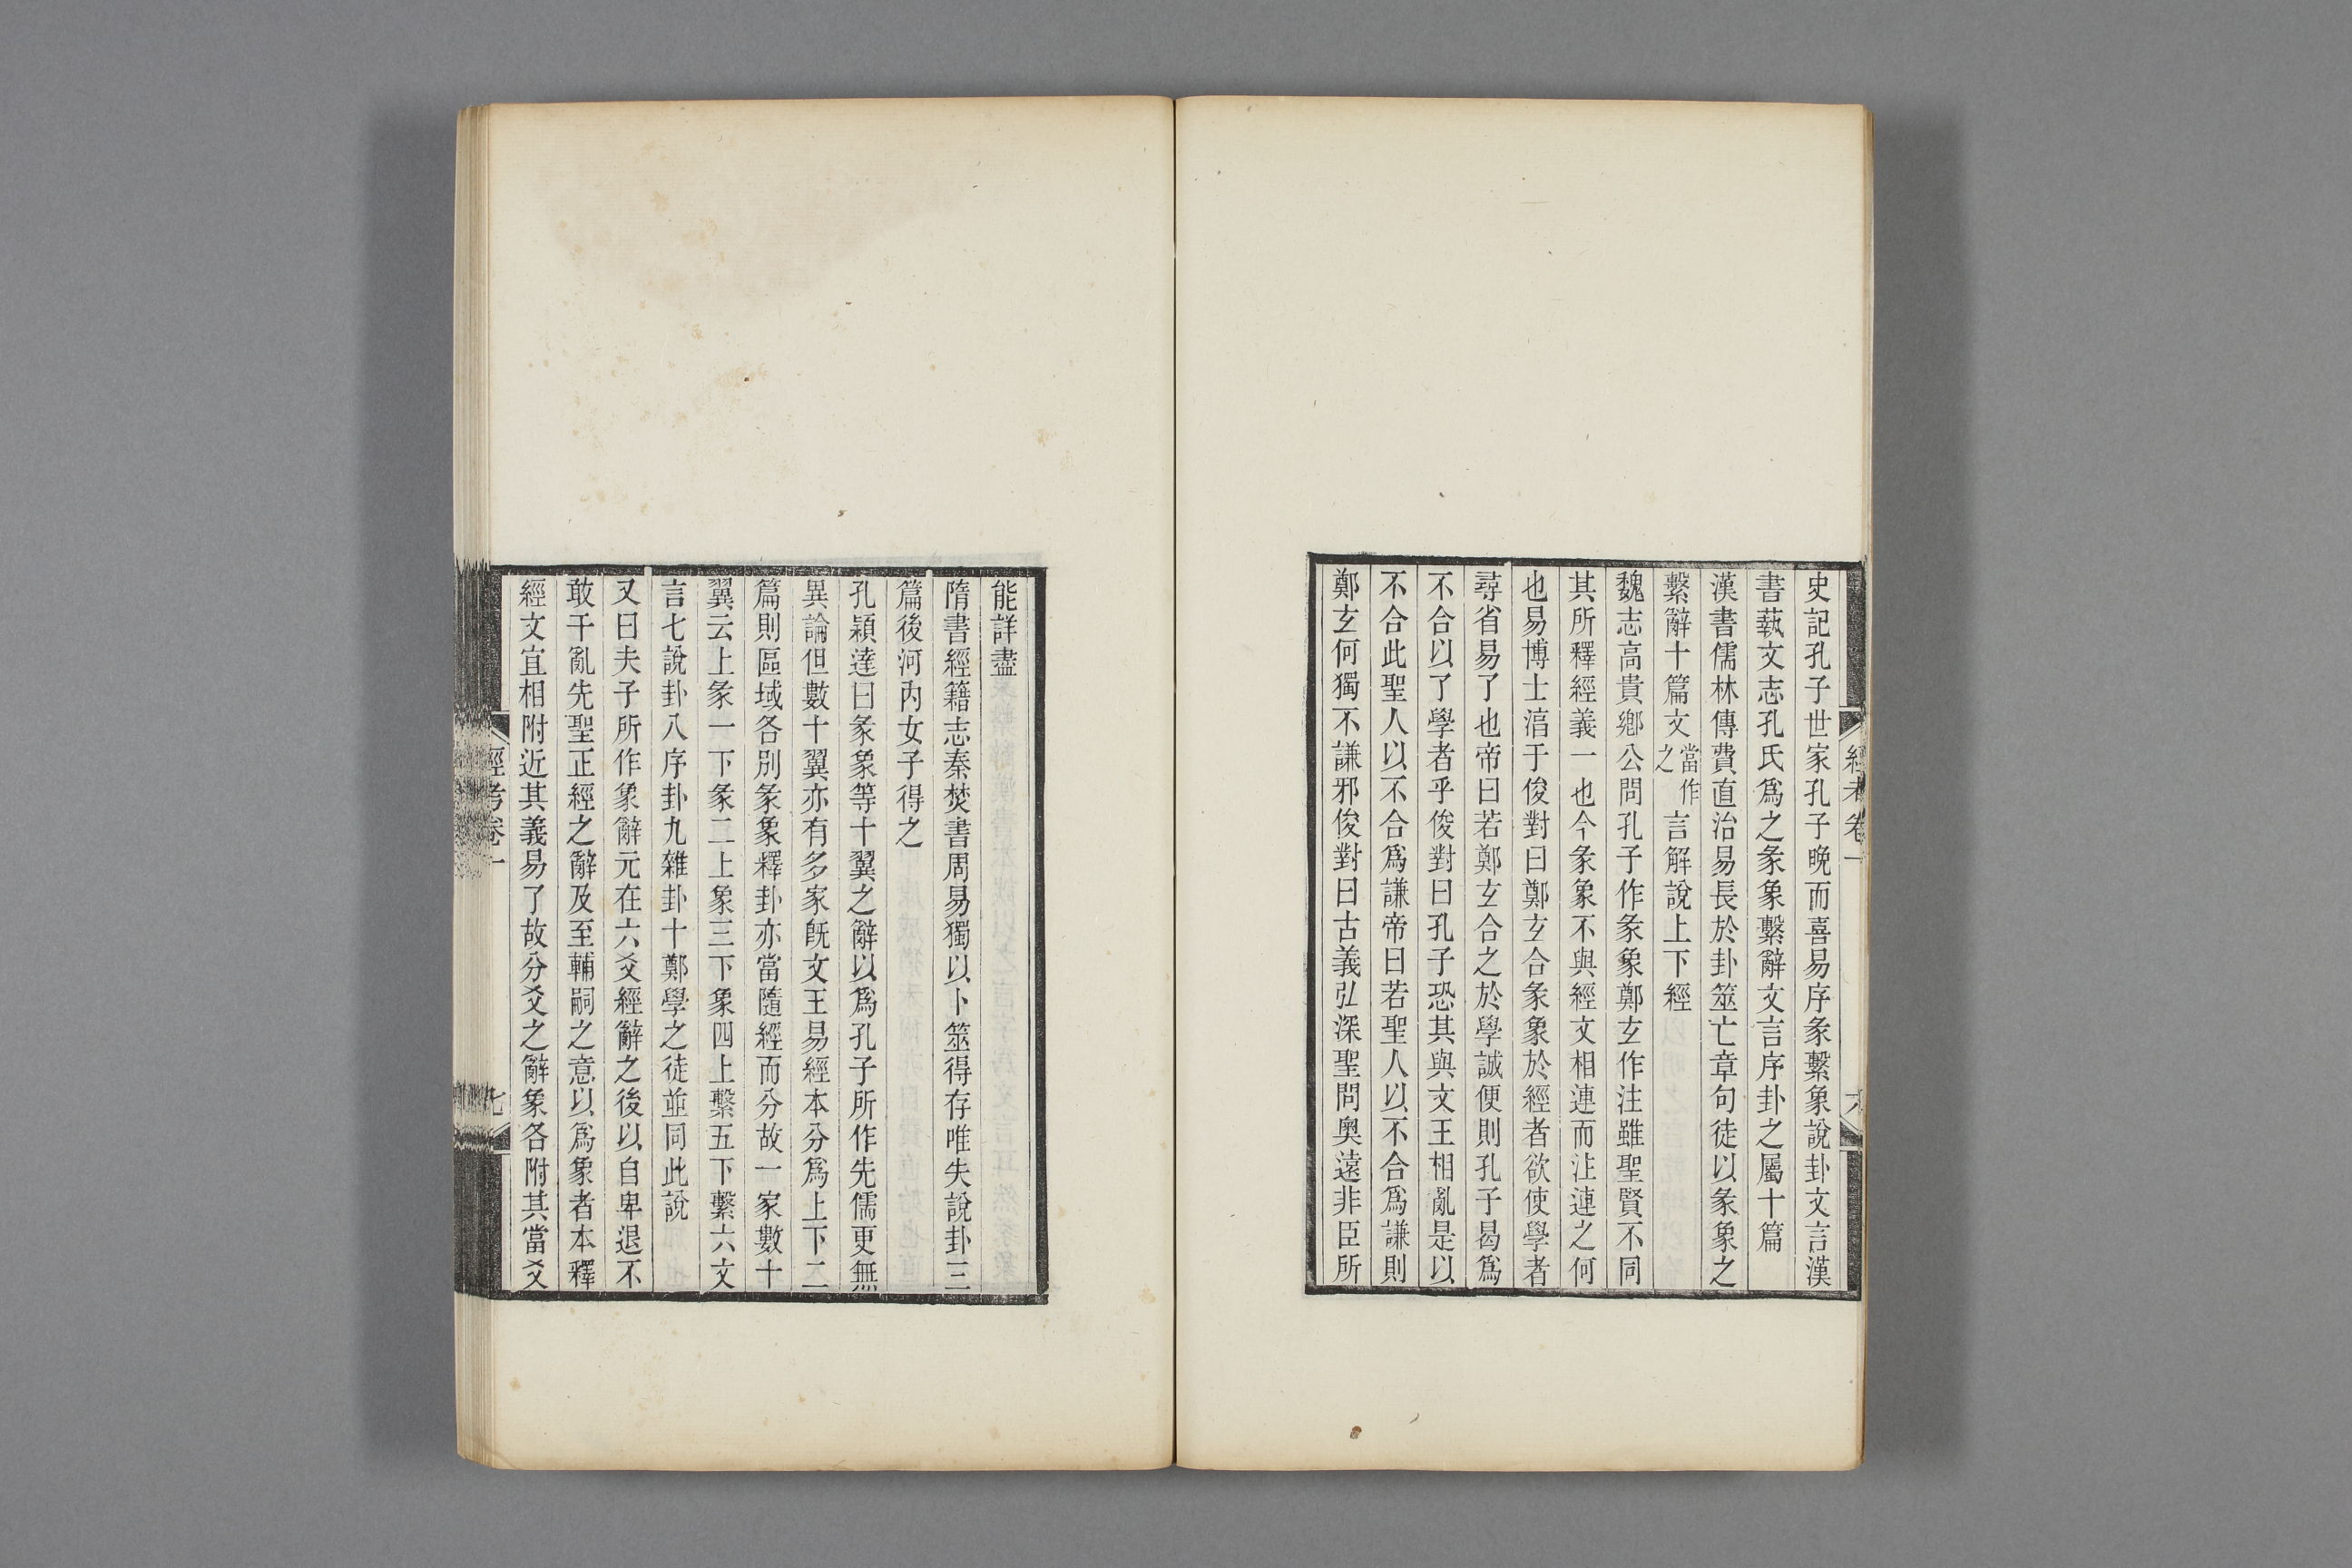 經考卷一
六
史記孔子世家孔子晚而喜易序彖繫象說卦文言漢
書蓺文志孔氏爲之彖象繫辭文言序卦之屬十篇
漢書儒林傳費直治易長於卦筮亡章句徒以彖象之
繫辭十篇文當作之言解說上下經
魏志高貴鄉公問孔子作彖象鄭玄作注雖聖賢不同
其所釋經義一也今彖象不與經文相連而注連之何
也易博士淯于俊對曰鄭玄合彖象於經者欲使學者
尋省易了也帝曰若鄭玄合之於學誠便則孔子曷爲
不合以了學者乎俊對曰孔子恐其與文王相亂是以
不合此聖人以不合爲謙帝曰若聖人以不合爲謙則
鄭玄何獨不謙邪俊對曰古義弘深聖問奧遠非臣所
能詳盡
隋書經籍志秦焚書周易獨以卜筮得存唯失說卦三
篇後河內女子得之
孔穎達曰彖象等十翼之辭以爲孔子所作先儒更無
異論但數十翼亦有多家旣文王易經本分爲上下二
篇則區域各別彖象釋卦亦當隨經而分故一家數十
翼云上彖一下彖二上象三下象四上繫五下繫六文
言七說卦八序卦九雜卦十鄭學之徒並同此說
又曰夫子所作象辭元在六爻經辭之後以自卑退不
敢干亂先聖正經之辭及至輔嗣之意以爲象者本釋
經文宜相附近其義易了故分爻之辭象各附其當爻
經考卷一
七